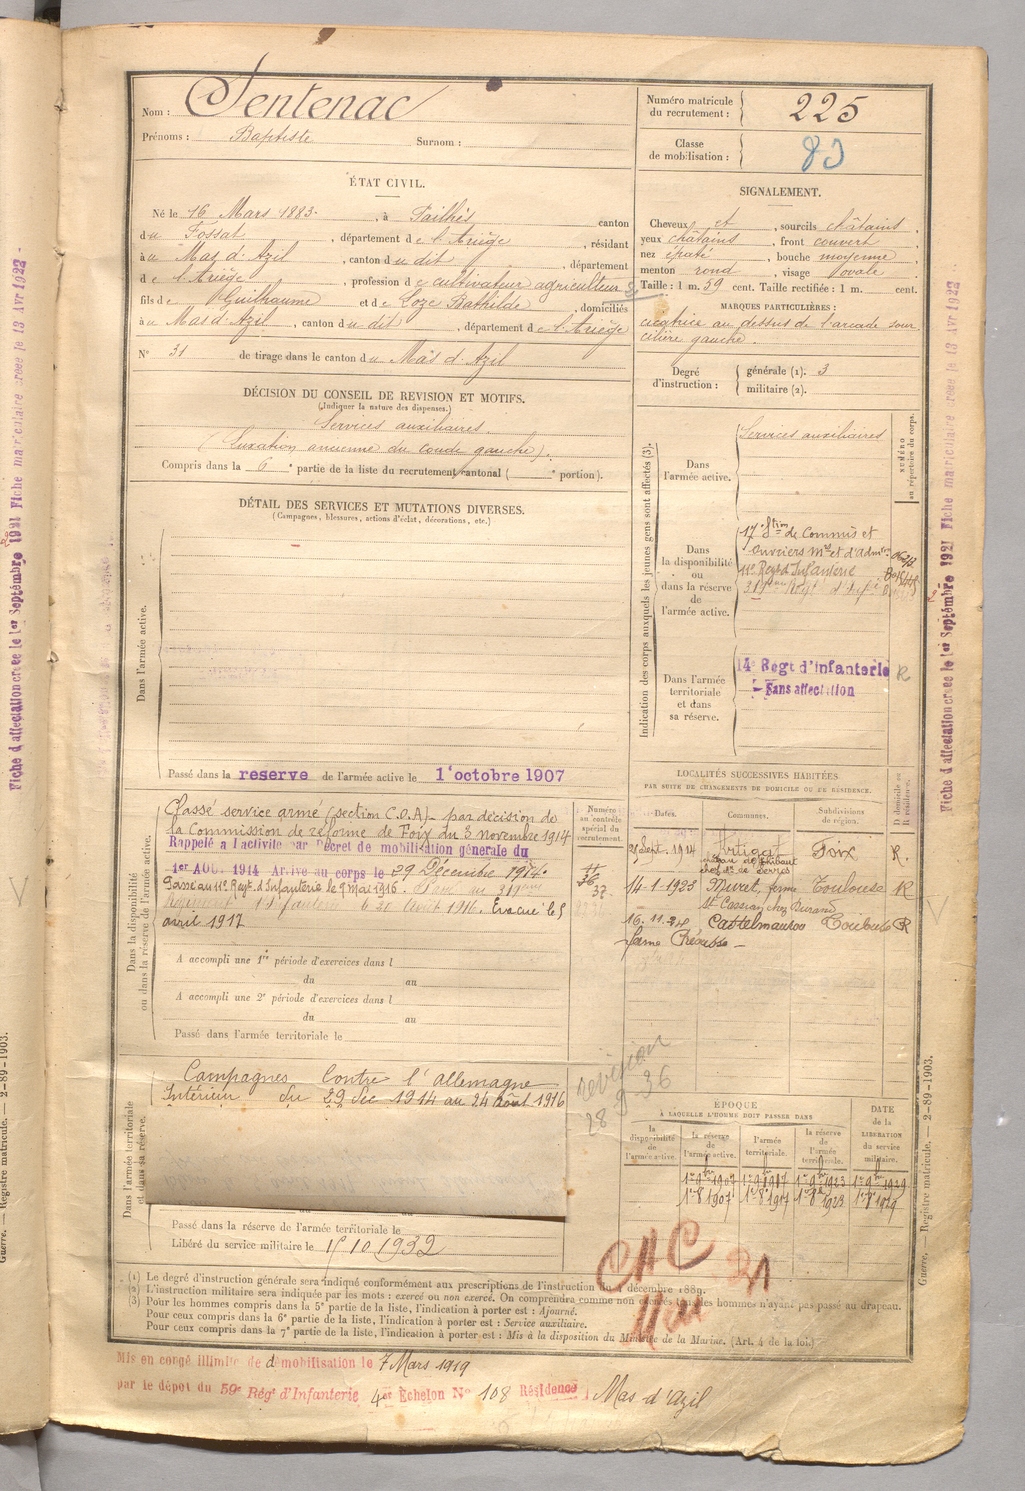 Nom : Sentenac
Prénoms : Baptiste Surnom :
Numéro matricule du recrutement : 225
Classe de mobilisation : 83
ÉTAT CIVIL.
Né le 16 Mars 1883, à Pailhès canton
du Fossat, département de l'Ariège, résidant
au Mas d'Azil, canton du dit, département
de l'Ariège, profession de cultivateur agriculteur
fils de Guilhaume et de Loze Bathilde, domiciliés
au Mas d'Azil, canton du dit, département de l'Ariège
N° 31 de tirage dans le canton du Mas d'Azil
SIGNALEMENT.
Cheveux et, sourcils châtains,
yeux châtains, front couvert,
nez épaté, bouche moyenne,
menton rond, visage ovale.
Taille : 1 m. 59 cent. Taille rectifiée : 1 m. cent.
MARQUES PARTICULIÈRES :
cicatrice au dessus de l'arcade sour
cilière gauche.
Degré d'instruction : générale (1). 3
militaire (2).
DÉCISION DU CONSEIL DE REVISION ET MOTIFS.
(Indiquer la nature des dispenses.)
Services auxiliaires
(Luxation ancienne du coude gauche).
Compris dans la 6e partie de la liste du recrutement cantonal ( e portion).
DÉTAIL DES SERVICES ET MUTATIONS DIVERSES.
(Campagnes, blessures, actions d'éclat, décorations, etc.)
Dans l'armée active.
Passé dans la reserve de l'armée active le 1er octobre 1907
Indication des corps auxquels les jeunes gens sont affectés (3).
NUMÉRO au répertoire du corps.
Dans l'armée active.
Services auxiliaires
Dans la disponibilité ou dans la réserve de l'armée active.
17e Stion de Commis et
Ouvriers Mres et d'Admon
11e Regt d'Infanterie
Dans l'armée territoriale et dans sa réserve.
14e Régt d'infanterie R
Sans affectation
Dans la disponibilité ou dans la réserve de l'armée active.
Classé service armé (section C.O.A) par décision de
la Commission de réforme de Foix du 3 novembre 1914
Rappelé à l'activité par Décret de mobilisation générale du
1er AOU. 1914 Arrivé au corps le 29 Décembre 1914.
Passé au 11e Regt. d'Infanterie le 9 mai 1916. Passé au 311ème
Régiment d'Infanterie le 24 Août 1916. Évacué le 5
avril 1917
A accompli une 1re période d'exercices dans l
du au
A accompli une 2e période d'exercices dans l
du au
Passé dans l'armée territoriale le
Numéro au contrôle spécial du recrutement.
36
37
LOCALITÉS SUCCESSIVES HABITÉES
PAR SUITE DE CHANGEMENTS DE DOMICILE OU DE RÉSIDENCE.
Dates. Communes. Subdivisions de région. D domicile ou R résidence.
21 Sept. 1914 Artigat Foix R.
14-1-1923 Muret, ferme Toulouse R
St Cassian chez Durand
16.11.24 Castelmaurou Toulouse R
Dans l'armée territoriale et dans sa réserve.
Campagnes Contre l'allemagne
Intérieur du 29 Dec 1914 au 24 Août 1916
revision
28 9 36
Passé dans la réserve de l'armée territoriale le
Libéré du service militaire le 15 10 1932
ÉPOQUE
À LAQUELLE L'HOMME DOIT PASSER DANS
la disponibilité de l'armée active. la réserve de l'armée active. l'armée territoriale. la réserve de l'armée territoriale. DATE de la LIBÉRATION du service militaire.
1er 9bre 1907 1er 9bre 1917 1er 9bre 1923 1er 9bre 1929
1er 8bre 1907 1er 8bre 1917 1er 8bre 1923 1er 8bre 1929
(1) Le degré d'instruction générale sera indiqué conformément aux prescriptions de l'Instruction du 4 décembre 1889.
(2) L'instruction militaire sera indiquée par les mots : exercé ou non exercé. On comprendra comme non exercés les hommes n'ayant pas passé au drapeau.
(3) Pour les hommes compris dans la 5e partie de la liste, l'indication à porter est : Ajourné.
Pour ceux compris dans la 6e partie de la liste, l'indication à porter est : Service auxiliaire.
Pour ceux compris dans la 7e partie de la liste, l'indication à porter est : Mis à la disposition du Ministre de la Marine. (Art. 4 de la loi.)
Mis en congé illimité de démobilisation le 7 Mars 1919
par le dépôt du 59e Rég' d'Infanterie 4e Echelon N° 108 Résidence Mas d'Azil
Fiche d'affectation créée le 1er Septembre 1921 Fiche matriculaire créée le 13 Avr 1922
Fiche d'affectation créée le 1er Septembre 1921 Fiche matriculaire créée le 13 Avr 1922
Guerre. — Registre matricule. — 2-89-1903.
Guerre. — Registre matricule. — 2-89-1903.